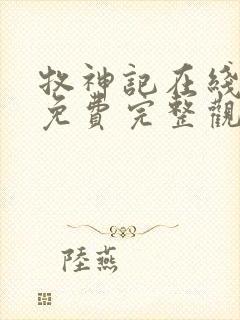 牧神記在綫
免費完整觀
陸燕